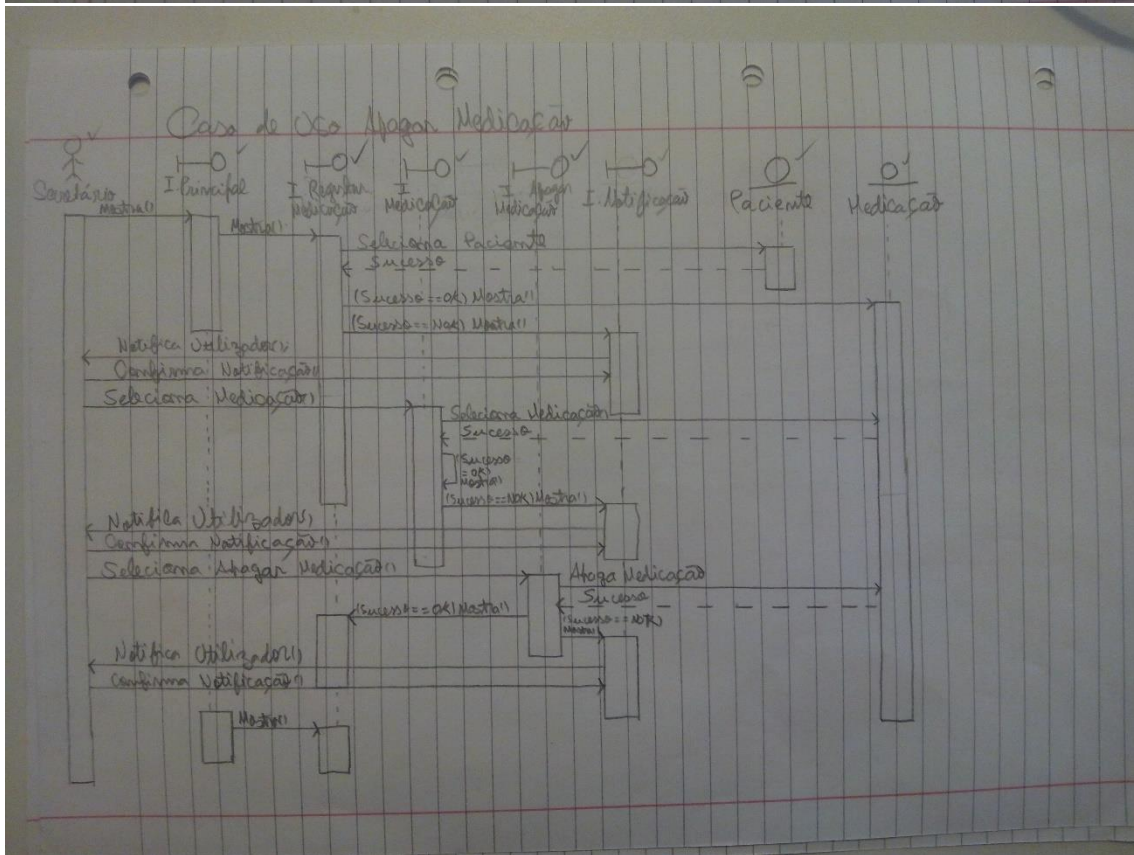 Caso de Uso Apagar Medicação
Secretário
I. Principal
I. Registar
Medicação
I.
Medicação
I. Apagar
Medicação
I. Notificação
Paciente
Medicação
Mostra()
Mostra()
Seleciona Paciente
Sucesso
(Sucesso==OK) Mostra()
(Sucesso==NOK) Mostra()
Notifica Utilizador()
Confirma Notificação()
Seleciona Medicação()
Seleciona Medicação
Sucesso
(Sucesso
=OK)
Mostra()
(Sucesso==NOK) Mostra()
Notifica Utilizador()
Confirma Notificação()
Seleciona Apagar Medicação()
Apaga Medicação
Sucesso
(Sucesso==OK) Mostra()
(Sucesso==NOK)
Mostra()
Notifica Utilizador()
Confirma Notificação()
Mostra()